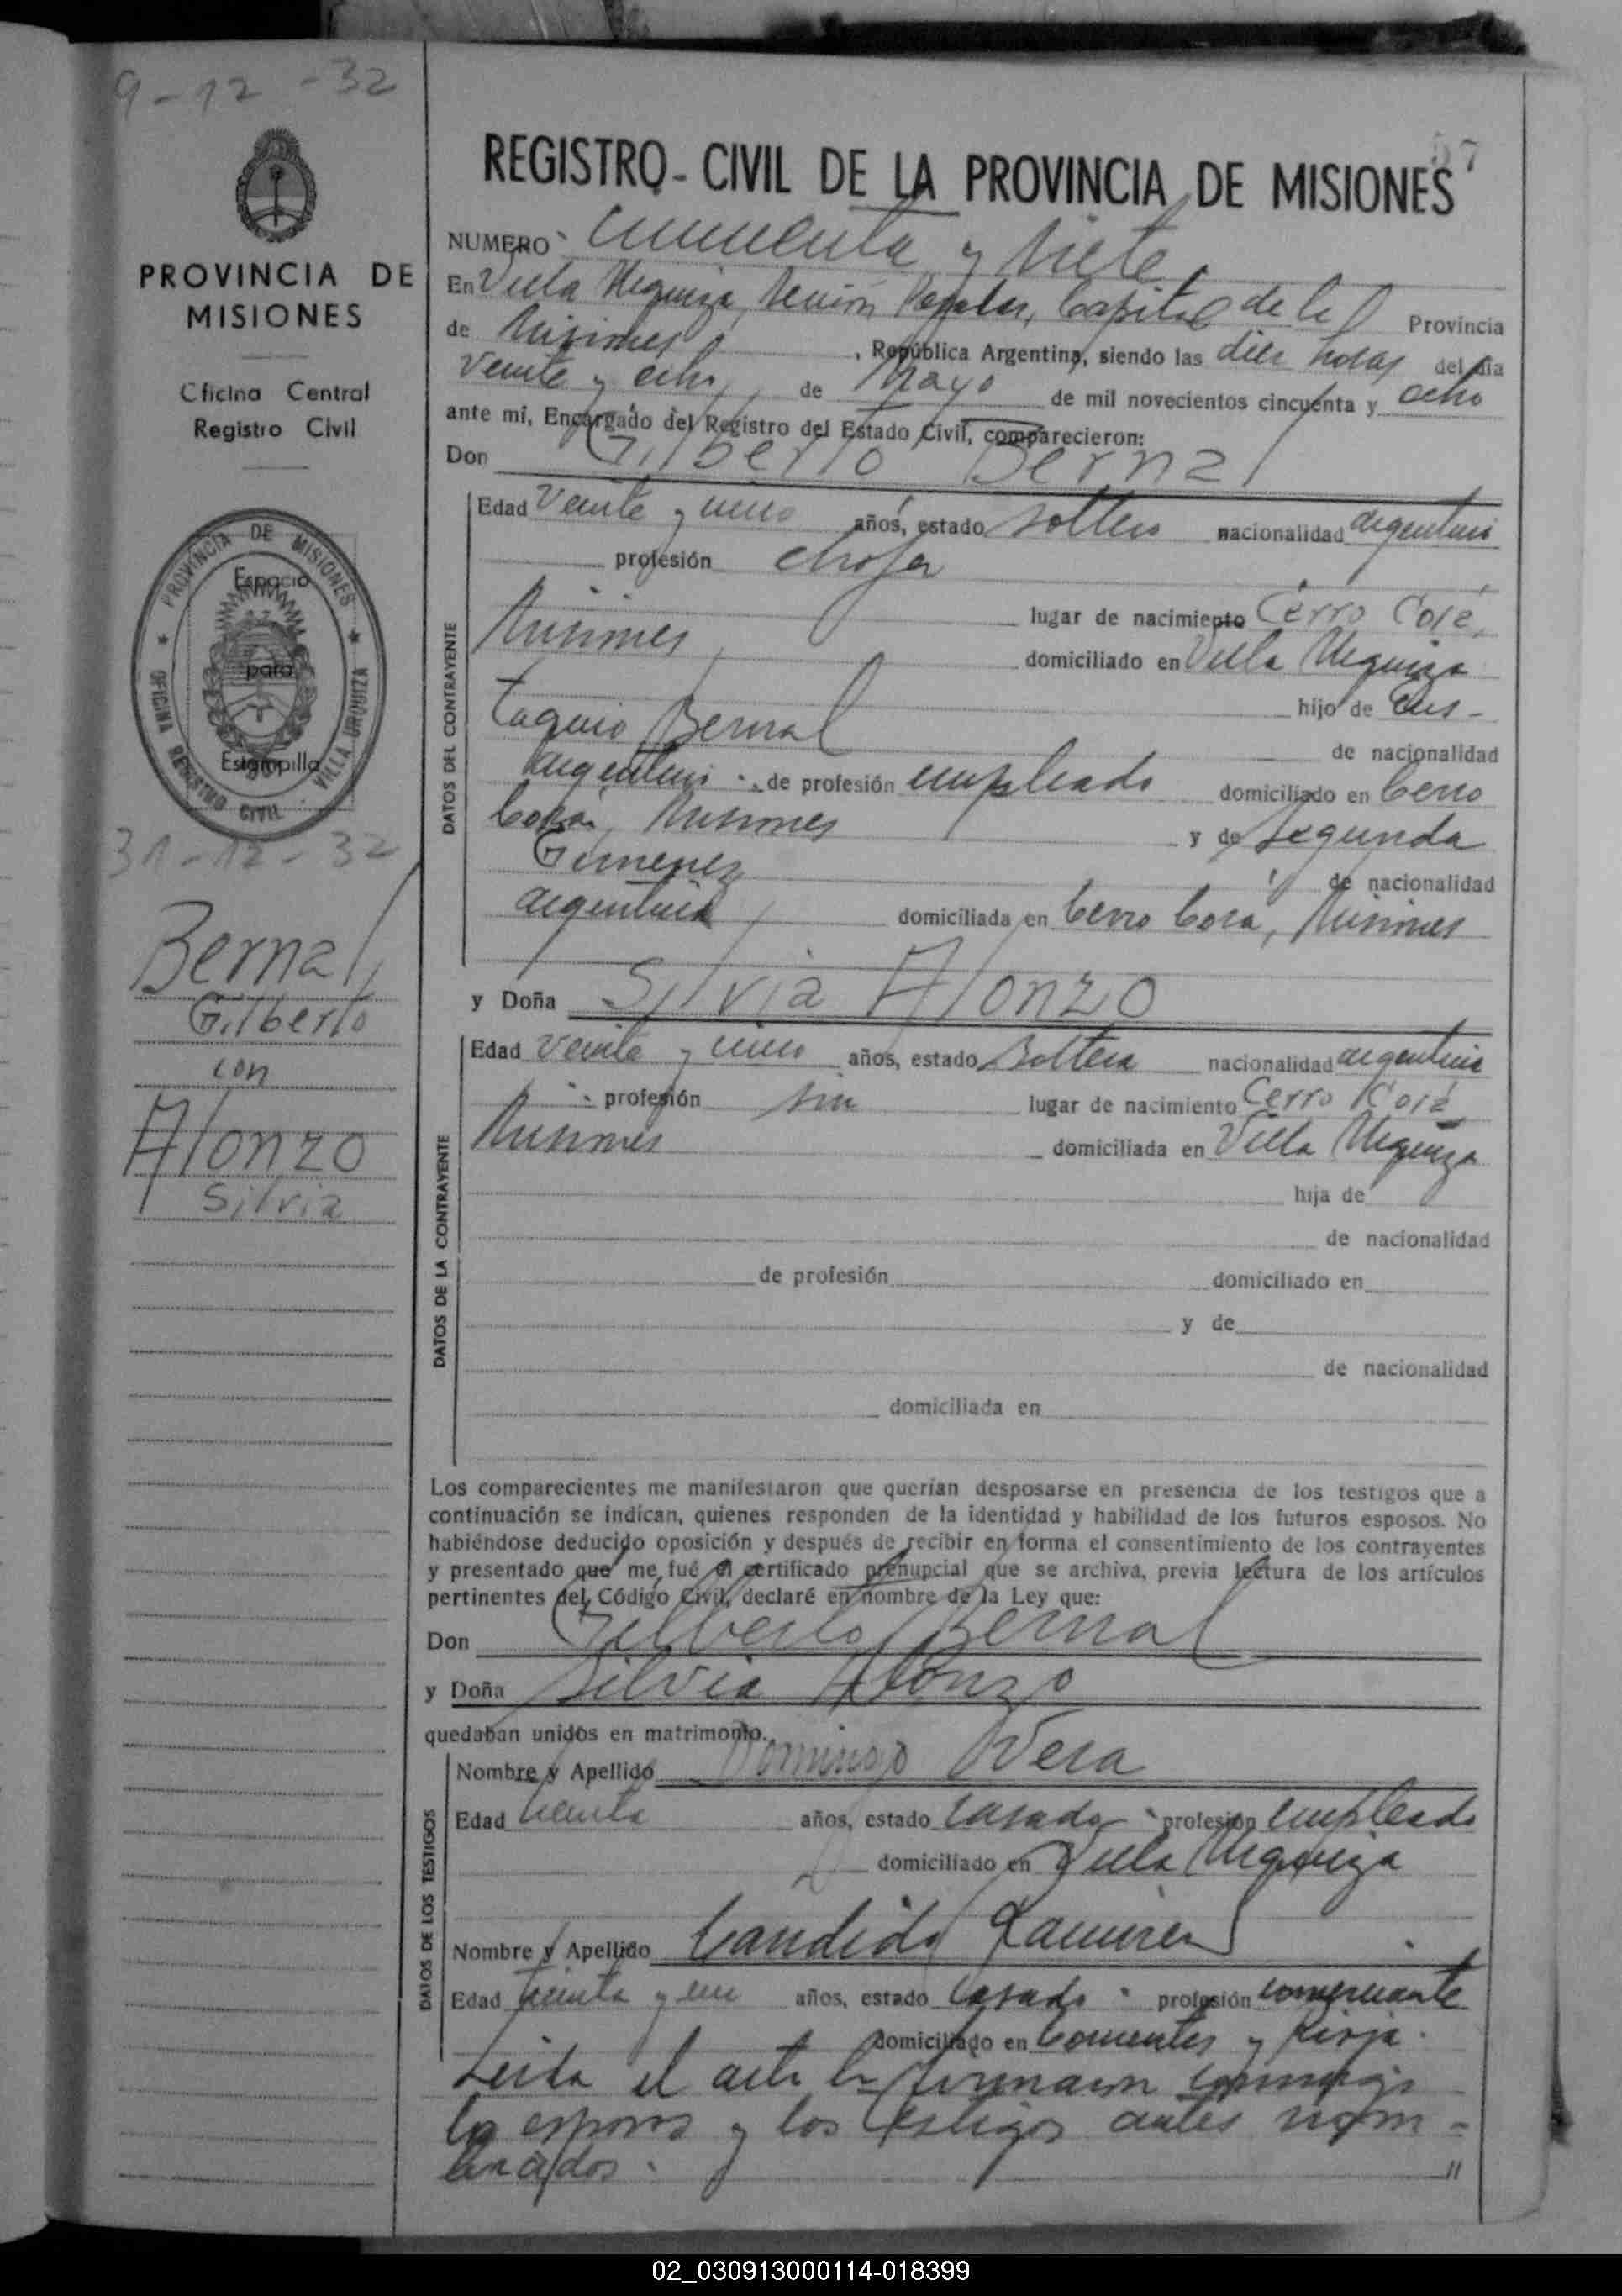 9-12-32
57
PROVINCIA DE
MISIONES
Oficina Central
Registro Civil
PROVINCIA DE MISIONES
OFICINA REGISTRO CIVIL · VILLA URQUIZA
Espacio
para
Estampilla
31-12-32
Bernal,
Gilberto
con
Alonzo
Silvia
REGISTRO - CIVIL DE LA PROVINCIA DE MISIONES
NUMERO cincuenta y siete
En Villa Urquiza, Sección Posadas, Capital de la Provincia
de Misiones, República Argentina, siendo las diez horas del día
veinte y ocho de Mayo de mil novecientos cincuenta y ocho
ante mí, Encargado del Registro del Estado Civil, comparecieron:
Don Gilberto Bernal
DATOS DEL CONTRAYENTE
Edad veinte y cinco años, estado soltero nacionalidad argentino
profesión chofer
lugar de nacimiento Cerro Corá,
Misiones domiciliado en Villa Urquiza
hijo de Eus-
taquio Bernal de nacionalidad
argentino de profesión empleado domiciliado en Cerro
Corá, Misiones y de Segunda
Gimenez de nacionalidad
argentina domiciliada en Cerro Corá, Misiones
y Doña Silvia Alonzo
DATOS DE LA CONTRAYENTE
Edad veinte y cinco años, estado soltera nacionalidad argentina
profesión sin lugar de nacimiento Cerro Corá
Misiones domiciliada en Villa Urquiza
hija de
de nacionalidad
de profesión domiciliado en
y de
de nacionalidad
domiciliada en
Los comparecientes me manifestaron que querían desposarse en presencia de los testigos que a
continuación se indican, quienes responden de la identidad y habilidad de los futuros esposos. No
habiéndose deducido oposición y después de recibir en forma el consentimiento de los contrayentes
y presentado que me fué el certificado prenupcial que se archiva, previa lectura de los artículos
pertinentes del Código Civil, declaré en nombre de la Ley que:
Don Gilberto Bernal
y Doña Silvia Alonzo
quedaban unidos en matrimonio.
DATOS DE LOS TESTIGOS
Nombre y Apellido Domingo Vera
Edad treinta años, estado casado profesión empleado
domiciliado en Villa Urquiza
Nombre y Apellido Candido Ramirez
Edad treinta y un años, estado casado profesión comerciante
domiciliado en Corrientes y Rioja.
Leida el acta la firmaron conmigo
los esposos y los testigos antes nom-
brados.
02_030913000114-018399